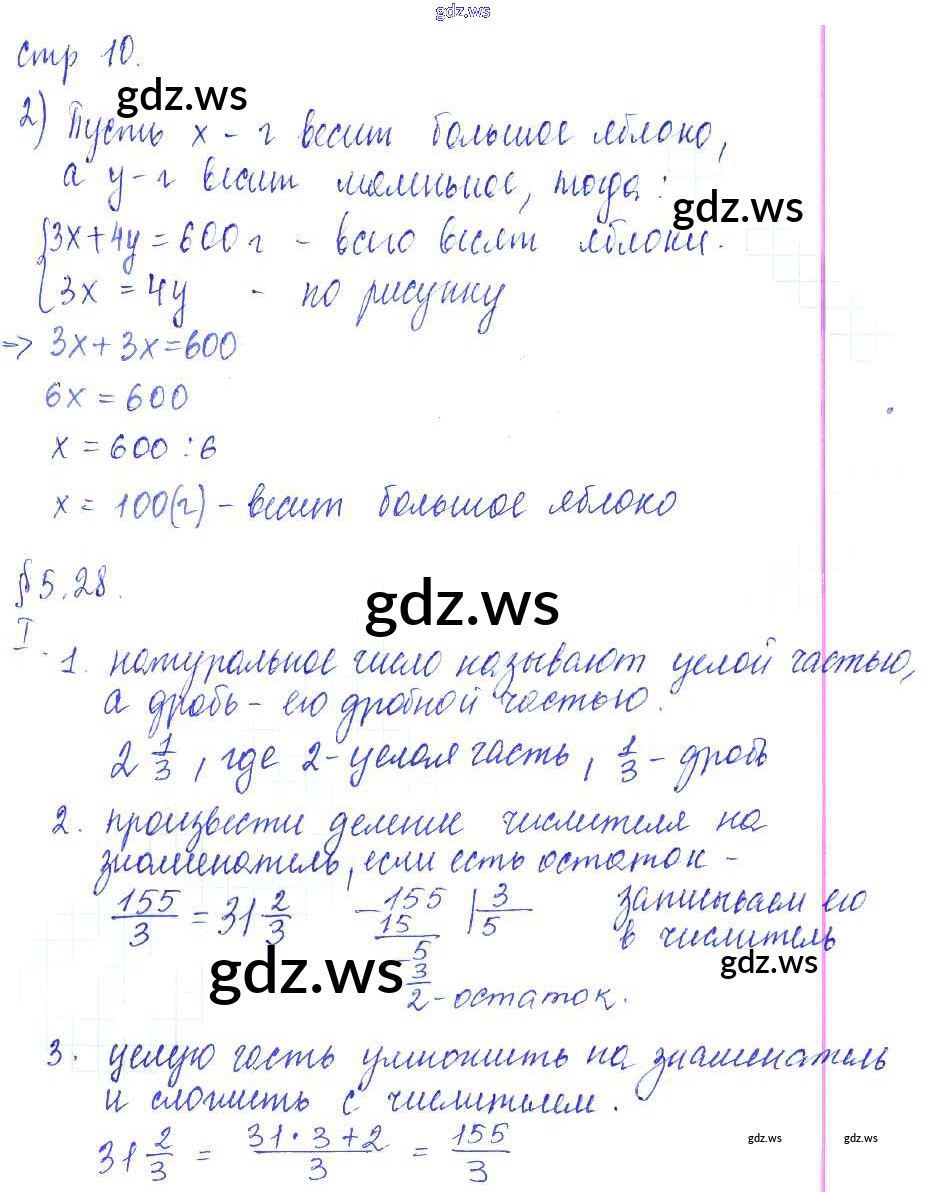 gdz.ws
стр 10.
gdz.ws
2) Пусть x - г весит большое яблоко,
а y - г весит маленькое, тогда:
gdz.ws
3x + 4y = 600 г - всего весят яблоки.
3x = 4y - по рисунку
=> 3x + 3x = 600
6x = 600
x = 600 : 6
x = 100 (г) - весит большое яблоко
§ 5.28.
gdz.ws
I.
1. натуральное число называют целой частью,
а дробь - его дробной частью.
2 1/3, где 2 - целая часть, 1/3 - дробь
2. произвести деление числителя на
знаменатель, если есть остаток -
155/3 = 31 2/3 −155 | 3 записываем его
15 5 в числитель
−5
gdz.ws gdz.ws
3
2 - остаток.
3. целую часть умножить на знаменатель
и сложить с числителем.
31 2/3 = (31 · 3 + 2)/3 = 155/3
gdz.ws gdz.ws